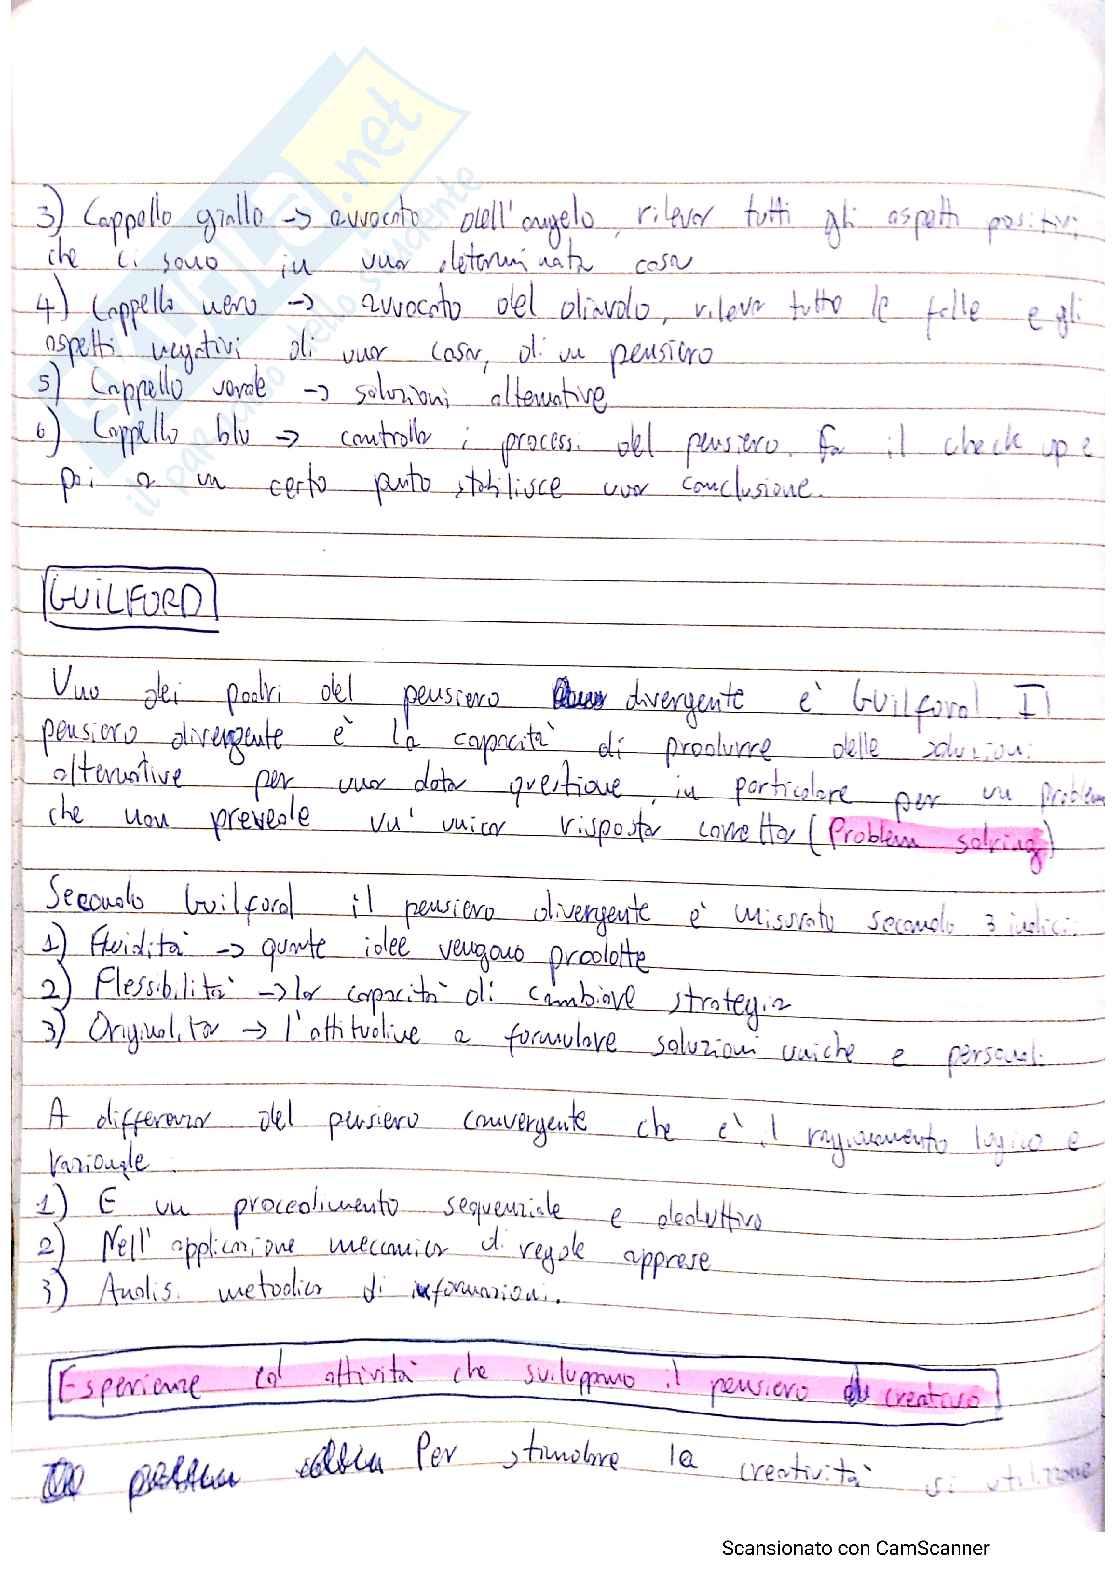 3) Cappello giallo -> avvocato dell'angelo, rileva tutti gli aspetti positivi
che ci sono in una determinata cosa
4) Cappello nero -> avvocato del diavolo, rileva tutte le falle e gli
aspetti negativi di una cosa, di un pensiero
5) Cappello verde -> soluzioni alternative
6) Cappello blu -> controlla i processi del pensiero. fa il check up e
poi a un certo punto stabilisce una conclusione.
GUILFORD
Uno dei padri del pensiero divergente è Guilford. Il
pensiero divergente è la capacità di produrre delle soluzioni
alternative per una data questione, in particolare per un problema
che non prevede un'unica risposta corretta (Problem solving)
Secondo Guilford il pensiero divergente è misurato secondo 3 indici:
1) Fluidità -> quante idee vengono prodotte
2) Flessibilità -> la capacità di cambiare strategia
3) Originalità -> l'attitudine a formulare soluzioni uniche e personali.
A differenza del pensiero convergente che è il ragionamento logico e
razionale.
1) È un procedimento sequenziale e deduttivo
2) Nell'applicazione meccanica di regole apprese
3) Analisi metodica di informazioni.
Esperienze ed attività che sviluppano il pensiero creativo
Per stimolare la creatività si utilizzano
Scansionato con CamScanner
.net
il paradiso dello studente